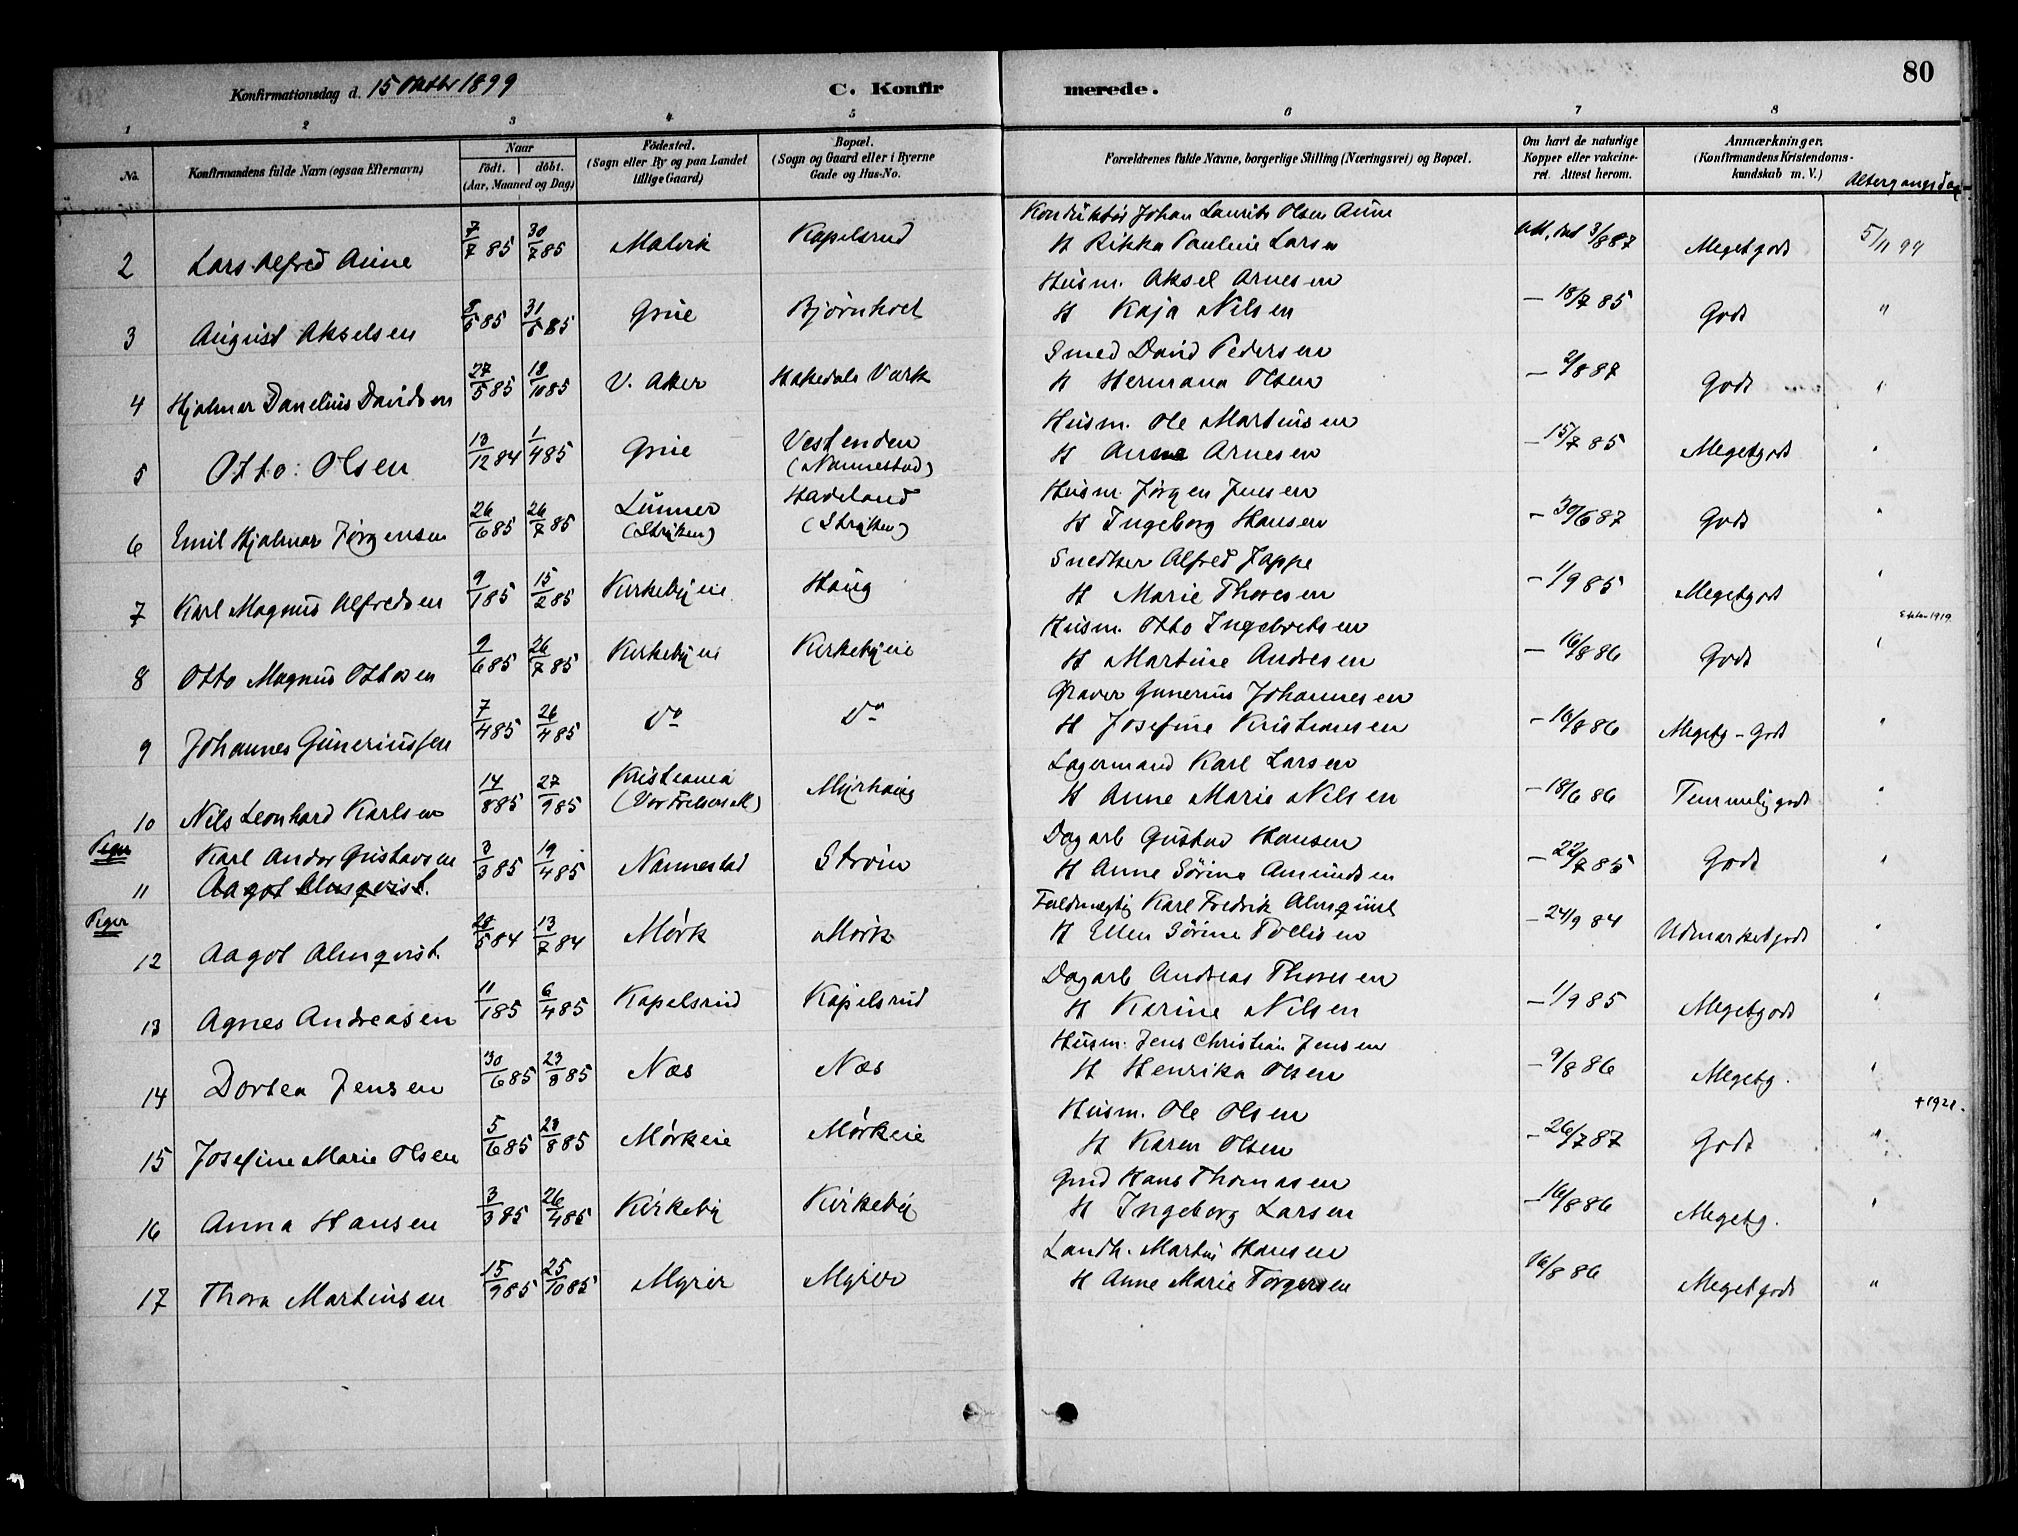 Konfirmationsdag d. 15 Oktbr 1899 C. Konfirmerede. 80
1 2 3 4 5 6 7 8
No. Konfirmandens fulde Navn (ogsaa Efternavn) Naar Födt. döbt. (Aar, Maaned og Dag) Födested. (Sogn eller By og paa Landet tillige Gaard) Bopæl. (Sogn og Gaard eller i Byerne Gade og Hus-No. Forældrenes fulde Navne, borgerlige Stilling (Næringsvei) og Bopæl. Om havt de naturlige Kopper eller vakcineret. Attest herom. Anmærkninger. (Konfirmandens Kristendomskundskab m. V.) Altergangsdag
Konduktör Johan Laurits Olsen Aune
2 Lars Alfred Aune 7/7 85 30/7 85 Malvik Kapelsrud H Rikka Pauline Larsen Att. 3/8 87 Megetgodt 5/11 99
Husm. Aksel Arnesen
3 August Akselsen 8/5 85 31/5 85 Grue Bjørnholt H Kaja Nilsen — 18/7 85 Godt "
Smed David Pedersen
4 Hjalmar Danelius Davidsen 27/5 85 18/10 85 V. Aker Hakedals Værk H Hermana Olsen — 2/8 87 Godt "
Husm. Ole Martinsen
5 Otto Olsen 13/12 84 1/4 85 Grue Vestenden (Nannestad) H Anne Arnesen — 15/7 85 Megetgodt "
Husm. Jørgen Jensen
6 Emil Hjalmar Jørgensen 26/6 85 26/7 85 Lunner (Stryken) Hadeland (Stryken) H Ingeborg Hansen — 30/6 87 Godt "
Snedker Alfred Jappe
7 Karl Magnus Alfredsen 9/1 85 15/2 85 Kirkebyeie Haug H Marie Thoresen — 1/9 85 Megetgodt "
Husm. Otto Ingebretsen 1919
8 Otto Magnus Ottosen 9/6 85 26/7 85 Kirkebyeie Kirkebyeie H Martine Andresen — 16/8 86 Godt "
Graver Gunerius Johannesen
9 Johannes Guneriussen 7/4 85 26/4 85 Do Do H Josefine Kristiansen — 16/8 86 Megetg - Godt "
Lagermand Karl Larsen
10 Nils Leonhard Karlsen 14/8 85 27/9 85 Kristiania (Vor Frelsers M) Myrhaug H Anne Marie Nilsen — 18/6 86 Temmelig godt "
Piger
Dagarb Gustav Hansen
11 Karl Andor Gustavsen 3/3 85 19/4 85 Nannestad Strøm H Anne Sørine Amundsen — 22/7 85 Godt "
Aagot Almqvist.
Piger
Fuldmægtig Karl Fredrik Almquist
12 Aagot Almqvist 28/5 84 13/7 84 Mørk Mørk H Ellen Sørine Tollisen — 24/9 84 Udmærketgodt "
Dagarb Andreas Thoresen
13 Agnes Andreasen 11/1 85 6/4 85 Kapelsrud Kapelsrud H Karine Nilsen — 1/9 85 Megetgodt "
Husm. Jens Christian Jensen
14 Dortea Jensen 30/6 85 23/8 85 Næs Næs H Henrika Olsen — 9/8 86 Megetg. "
Husm. Ole Olsen † 1921.
15 Josefine Marie Olsen 5/6 85 23/8 85 Mørkeie Mørkeie H Karen Olsen — 26/7 87 Godt "
Grd Hans Thomasen
16 Anna Hansen 3/3 85 26/4 85 Kirkeby Kirkeby H Ingeborg Larsen — 16/8 86 Megetg. "
Landh. Martin Hansen
17 Thora Martinsen 15/9 85 25/10 85 Myrer Myrer H Anne Marie Torgersen 16/8 86 Megetgodt "